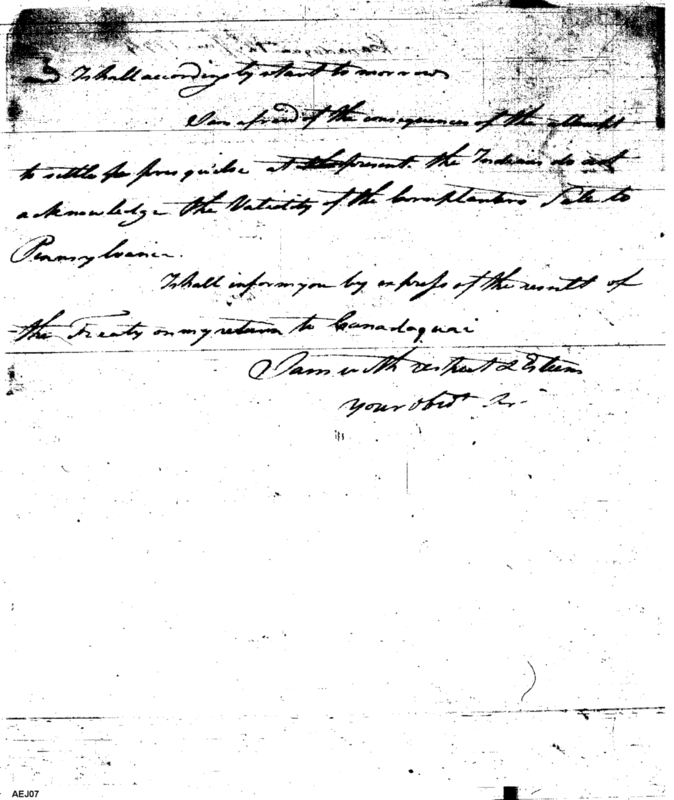 I shall accordingly start to morrow
I am afraid of the consequences of the attempt
to settle pe presqu'isle at the present. the Indians do not
acknowledge the Validity of the Cornplanters Sale to
Pennsylvania.
I shall inform you by express of the result of
the Treaty on my return to Canadaquai
I am with respect & Esteem
your obdt Sr.
AEJ07